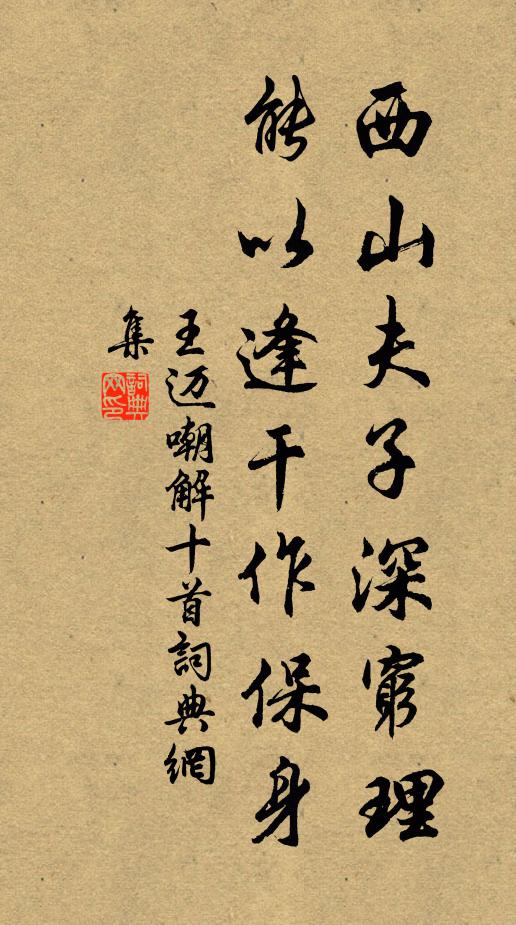 西山夫子深窮理
能以逢干作保身
王迈嘲解十首詞典網
集
詞典
网印